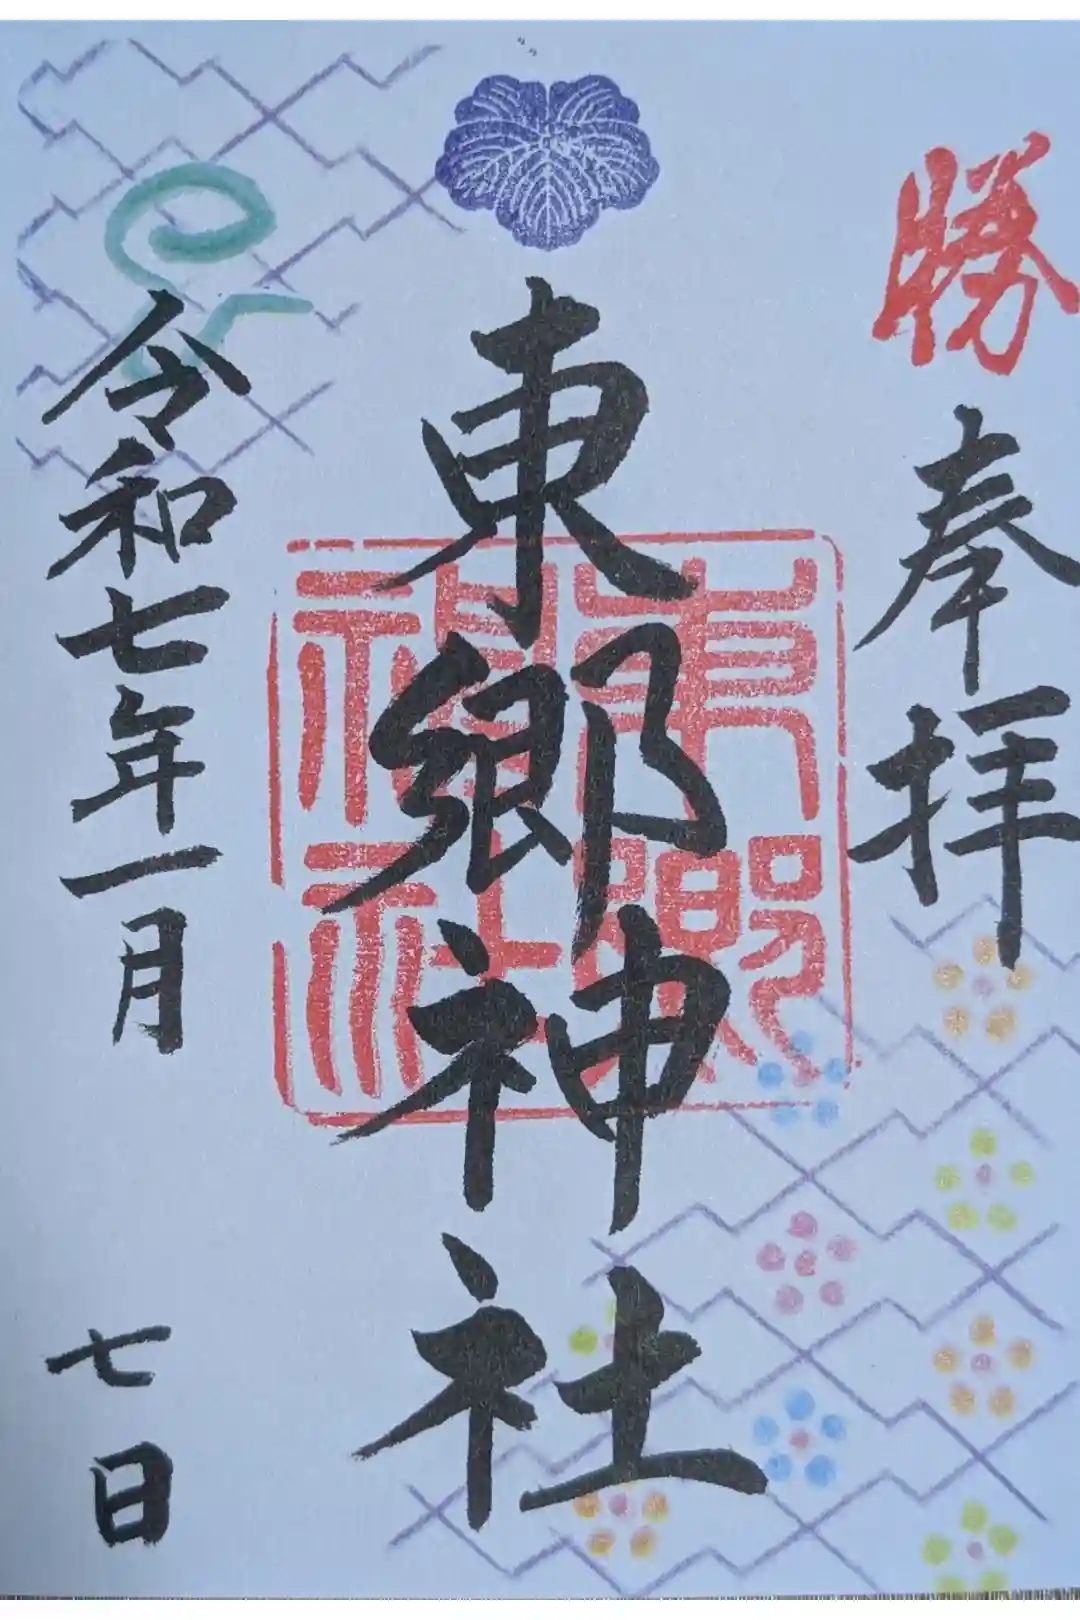 勝
奉拝
東郷神社
東郷神社
令和七年一月七日